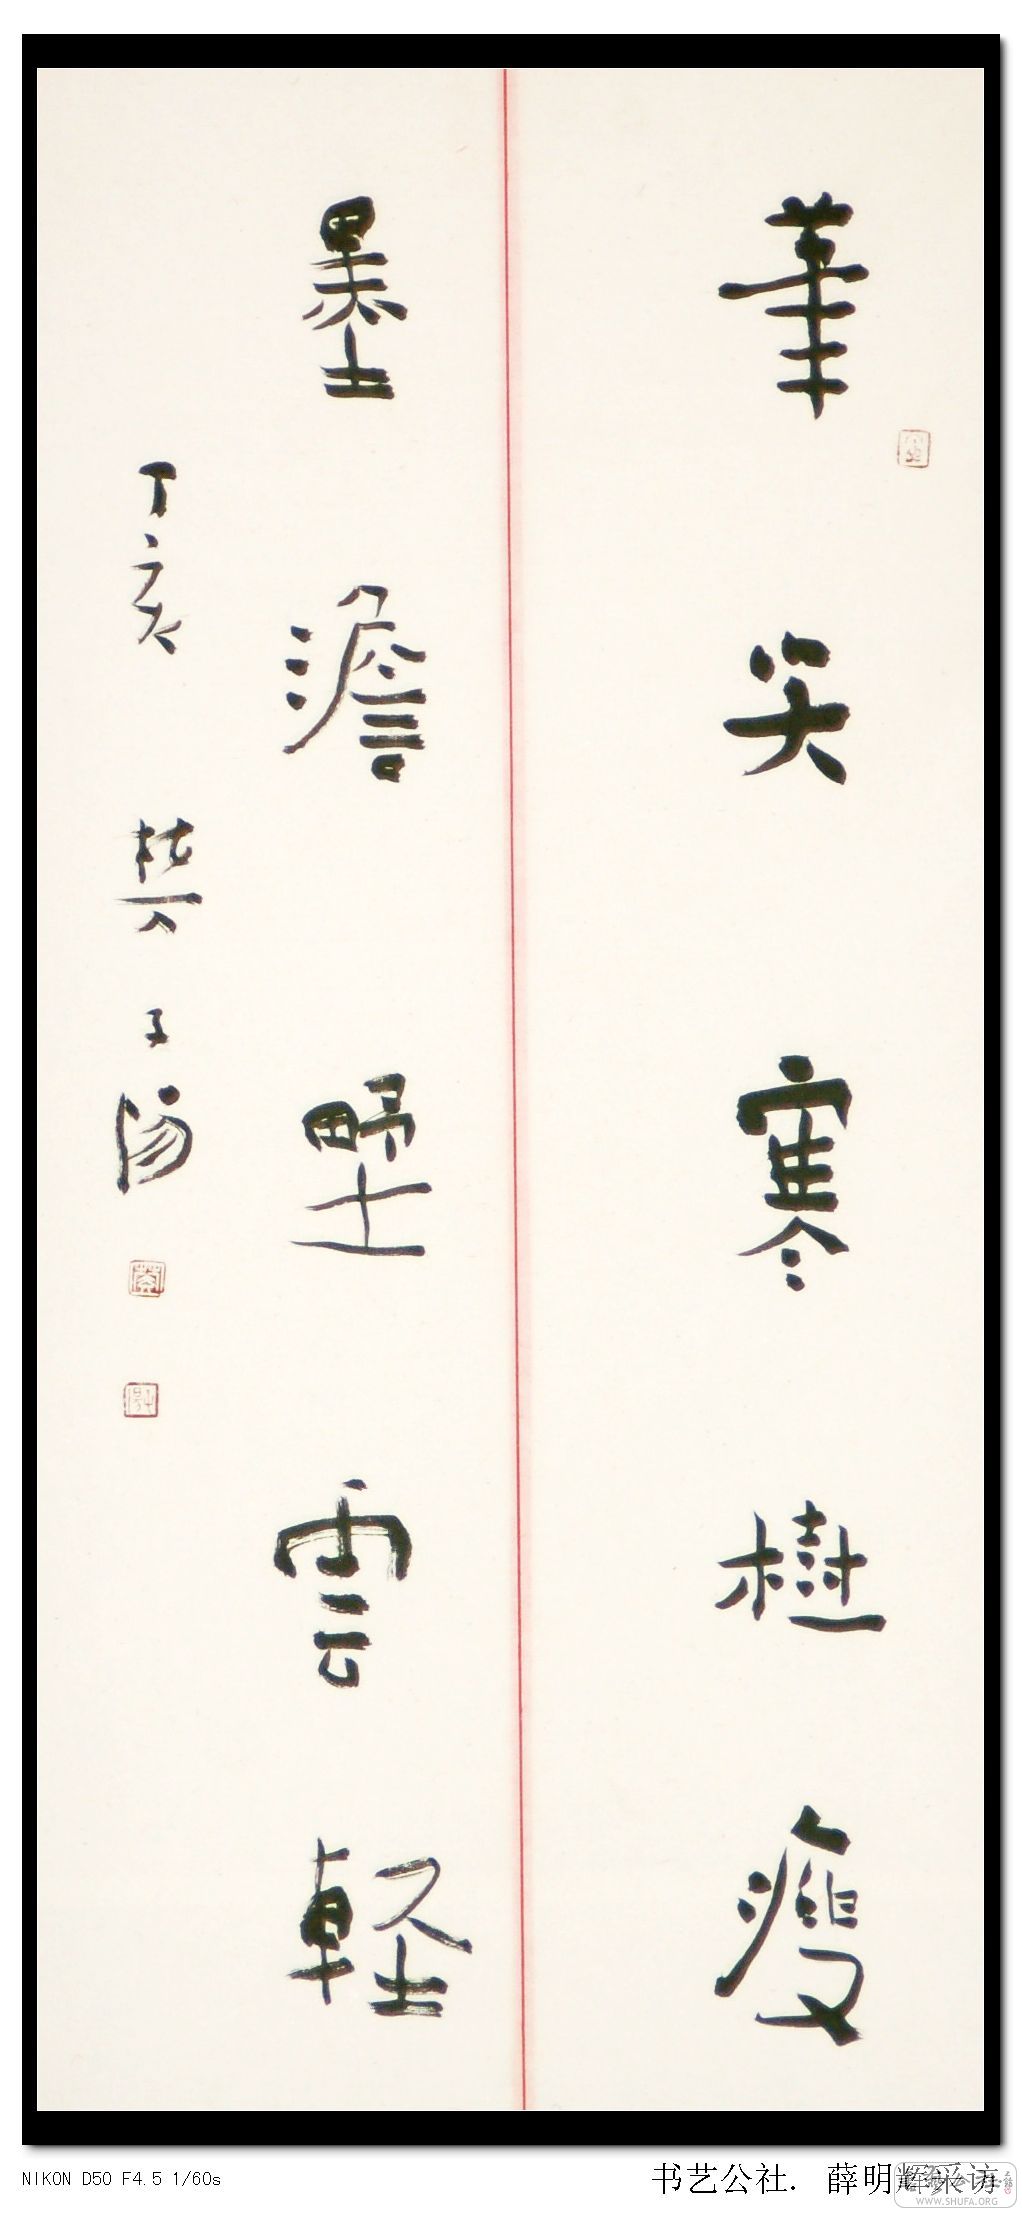 筆尖寒樹瘦
墨澹野雲軽
丁亥 樊子陽
NIKON D50 F4.5 1/60s
书艺公社. 薛明辉采访
WWW.SHUFA.ORG